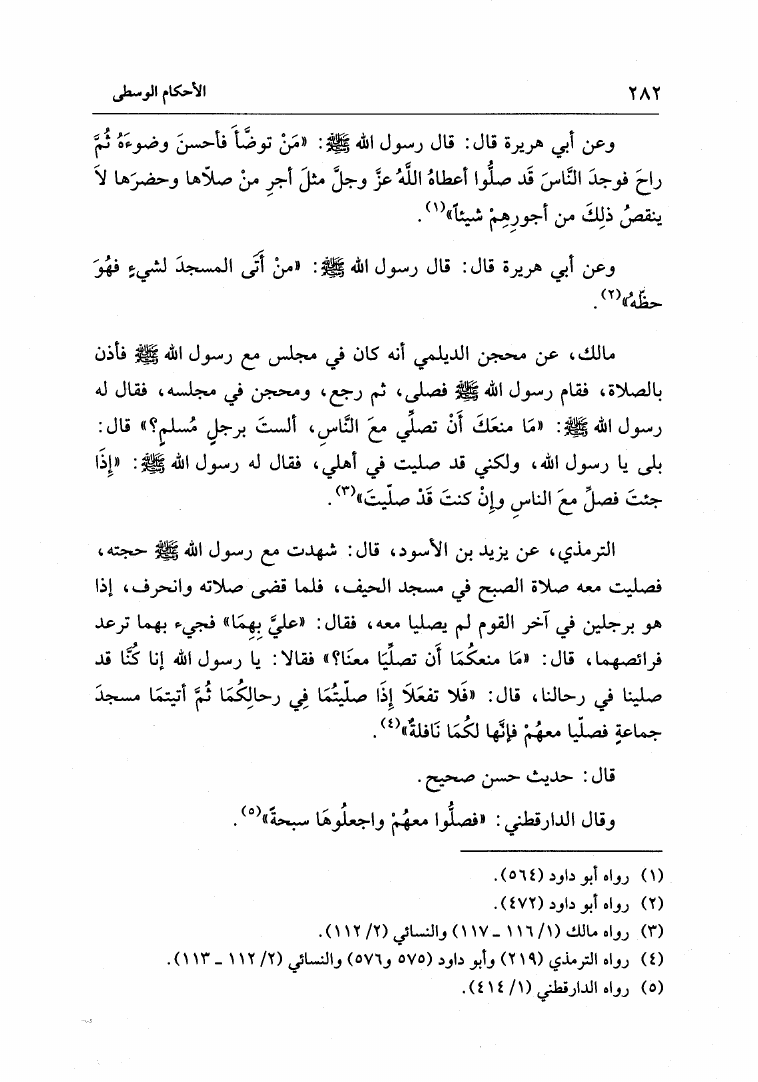 ٢٨٢ الأحكام الوسطى
وعن أبي هريرة قال: قال رسول الله ﷺ: «مَنْ توضَّأَ فأحسنَ وضوءَهُ ثُمَّ
راحَ فوجدَ النَّاسَ قَد صلُّوا أعطاهُ اللَّهُ عزَّ وجلَّ مثلَ أجرِ منْ صلاّها وحضرَها لاَ
ينقصُ ذلِكَ من أجورِهِمْ شيئاً»(١).
وعن أبي هريرة قال: قال رسول الله ﷺ: «منْ أَتَى المسجدَ لشيءٍ فهُوَ
حظّهُ»(٢).
مالك، عن محجن الديلمي أنه كان في مجلس مع رسول الله ﷺ فأذن
بالصلاة، فقام رسول الله ﷺ فصلى، ثم رجع، ومحجن في مجلسه، فقال له
رسول الله ﷺ: «مَا منعَكَ أَنْ تصلِّي معَ النَّاسِ، ألستَ برجلٍ مُسلمٍ؟» قال:
بلى يا رسول الله، ولكني قد صليت في أهلي، فقال له رسول الله ﷺ: «إِذَا
جئتَ فصلِّ معَ الناسِ وإِنْ كنتَ قَدْ صلّيتَ»(٣).
الترمذي، عن يزيد بن الأسود، قال: شهدت مع رسول الله ﷺ حجته،
فصليت معه صلاة الصبح في مسجد الحيف، فلما قضى صلاته وانحرف، إذا
هو برجلين في آخر القوم لم يصليا معه، فقال: «عليَّ بِهِمَا» فجيء بهما ترعد
فرائصهما، قال: «مَا منعكُمَا أَن تصلِّيَا معنَا؟» فقالا: يا رسول الله إنا كنَّا قد
صلينا في رحالنا، قال: «فَلا تفعَلاَ إِذَا صلّيتُمَا فِي رحالِكُمَا ثُمَّ أتيتمَا مسجدَ
جماعةٍ فصلّيا معهُمْ فإنَّها لكُمَا نَافلةٌ»(٤).
قال: حديث حسن صحيح.
وقال الدارقطني: «فصلُّوا معهُمْ واجعلُوهَا سبحةً»(٥).
(١) رواه أبو داود (٥٦٤).
(٢) رواه أبو داود (٤٧٢).
(٣) رواه مالك (١/ ١١٦ ـ ١١٧) والنسائي (٢/ ١١٢).
(٤) رواه الترمذي (٢١٩) وأبو داود (٥٧٥ و٥٧٦) والنسائي (٢/ ١١٢ ـ ١١٣).
(٥) رواه الدارقطني (١/ ٤١٤).